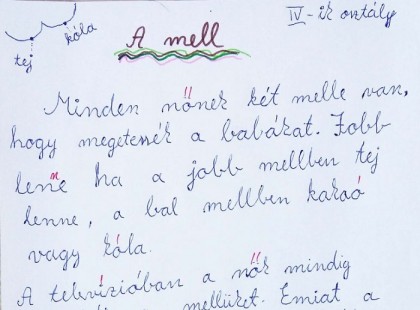 IV-ik osztály
kóla
tej
A mell
Minden nőnek két melle van,
hogy megetessék a babákat. Jobb
lenne ha a jobb mellben tej
lenne, a bal mellben kakaó
vagy kóla.
A televízióban a nők mindig
mellüket. Emiatt a